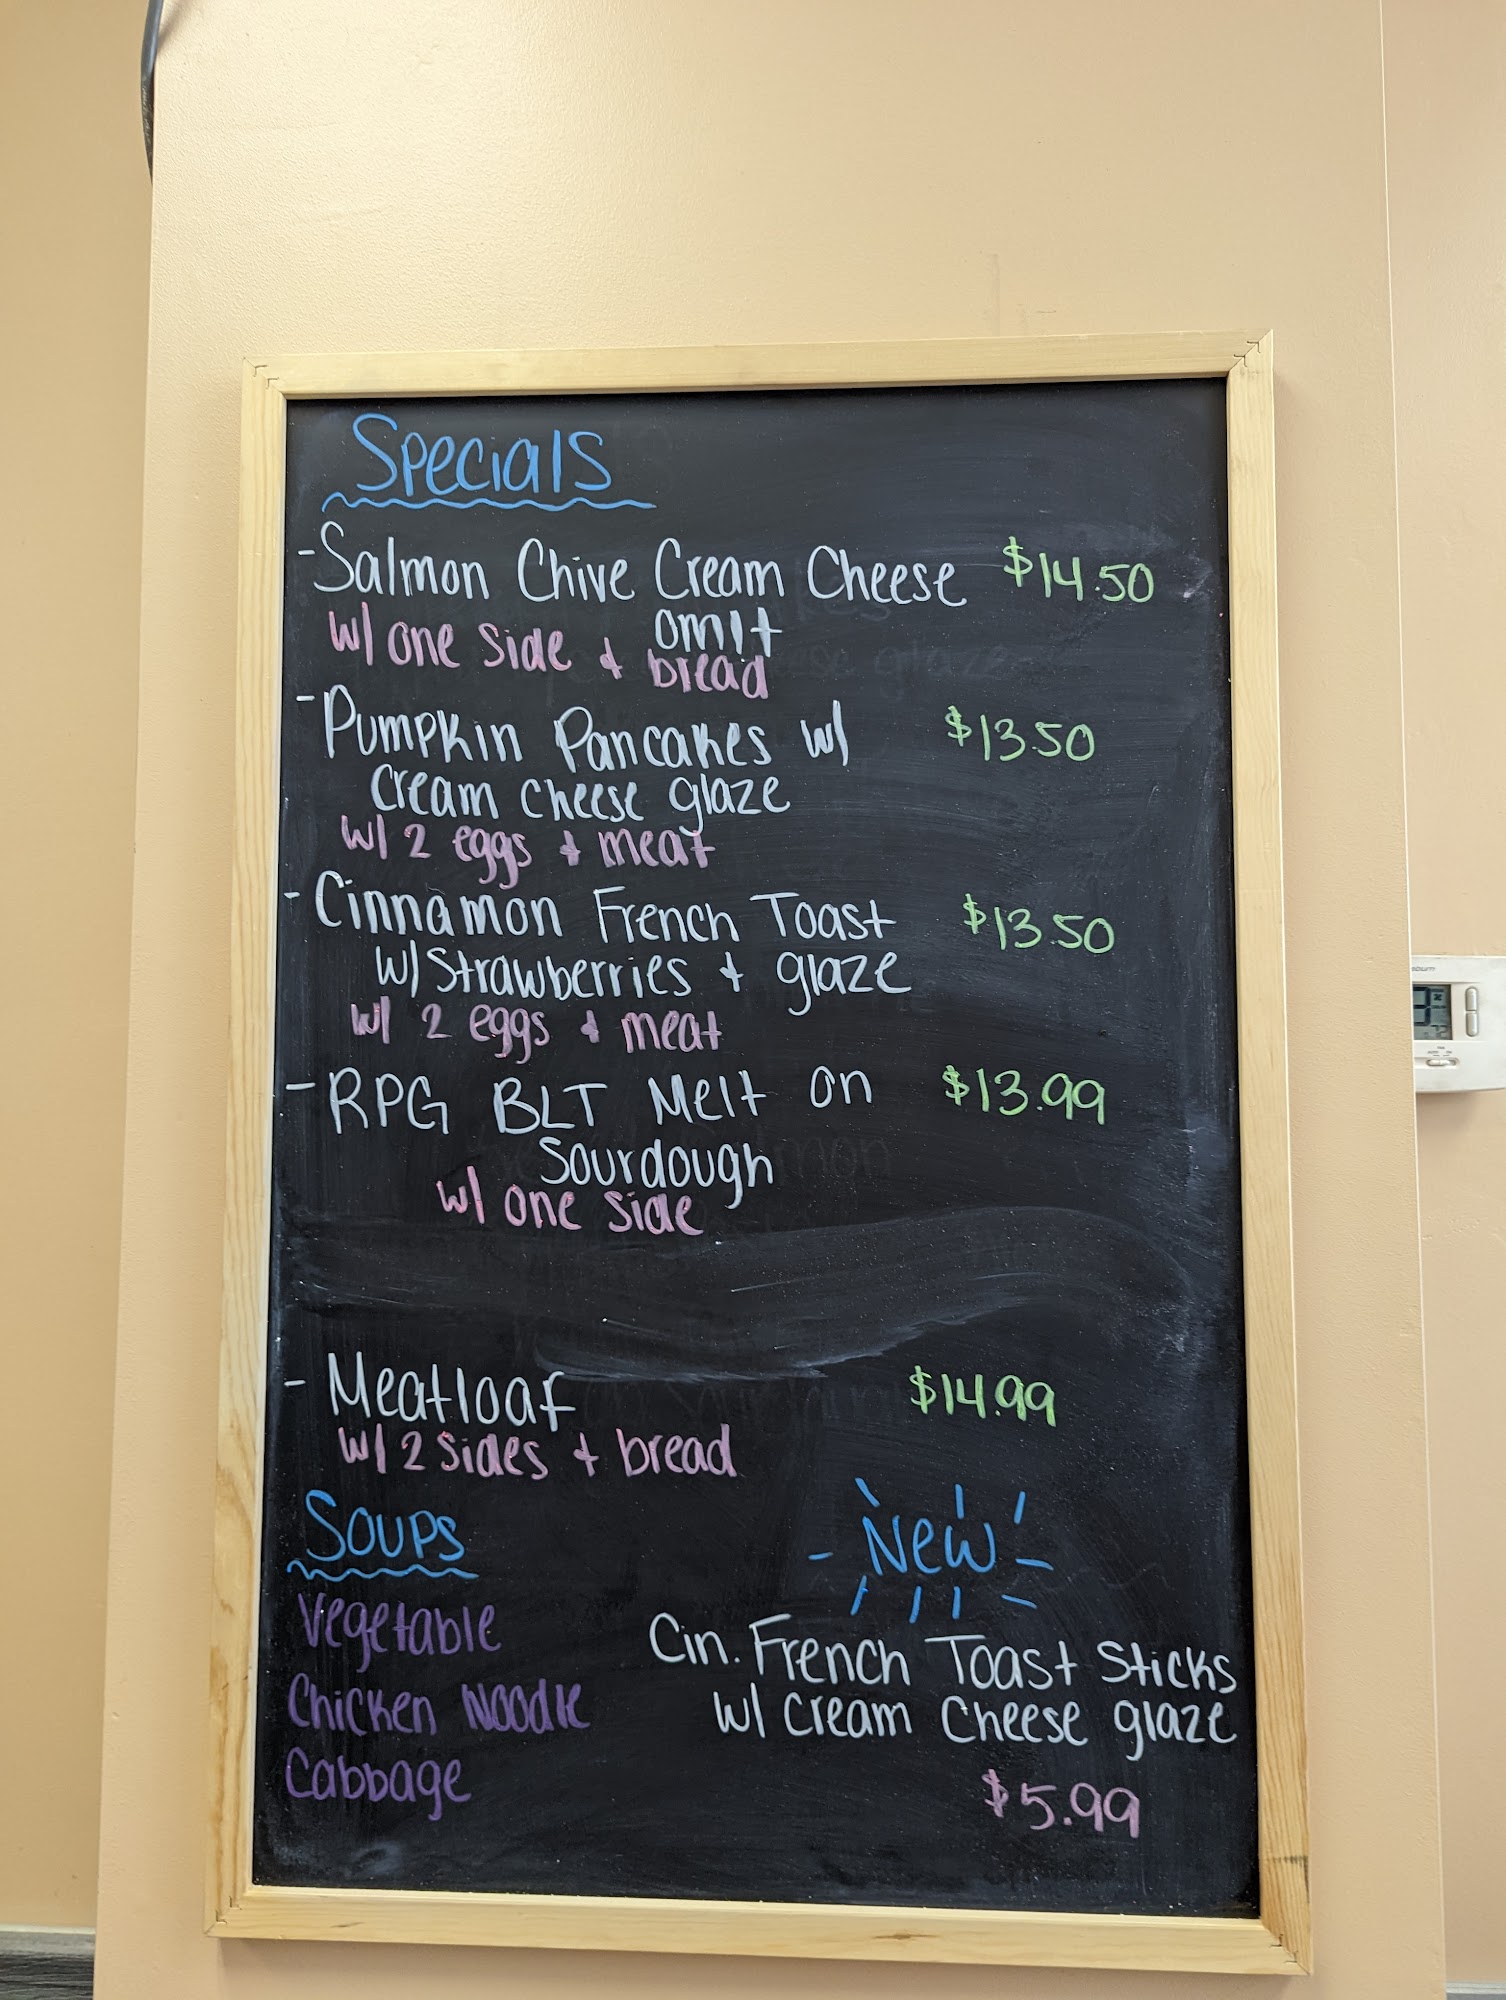 Specials
- Salmon Chive Cream Cheese $14.50
omit
w/ one side + bread
- Pumpkin Pancakes w/ $13.50
cream cheese glaze
w/ 2 eggs + meat
- Cinnamon French Toast $13.50
w/ Strawberries + glaze
w/ 2 eggs + meat
- RPG BLT Melt on $13.99
Sourdough
w/ one side
- Meatloaf $14.99
w/ 2 sides + bread
Soups
Vegetable
Chicken Noodle
Cabbage
- New -
Cin. French Toast Sticks
w/ cream cheese glaze
$5.99
72